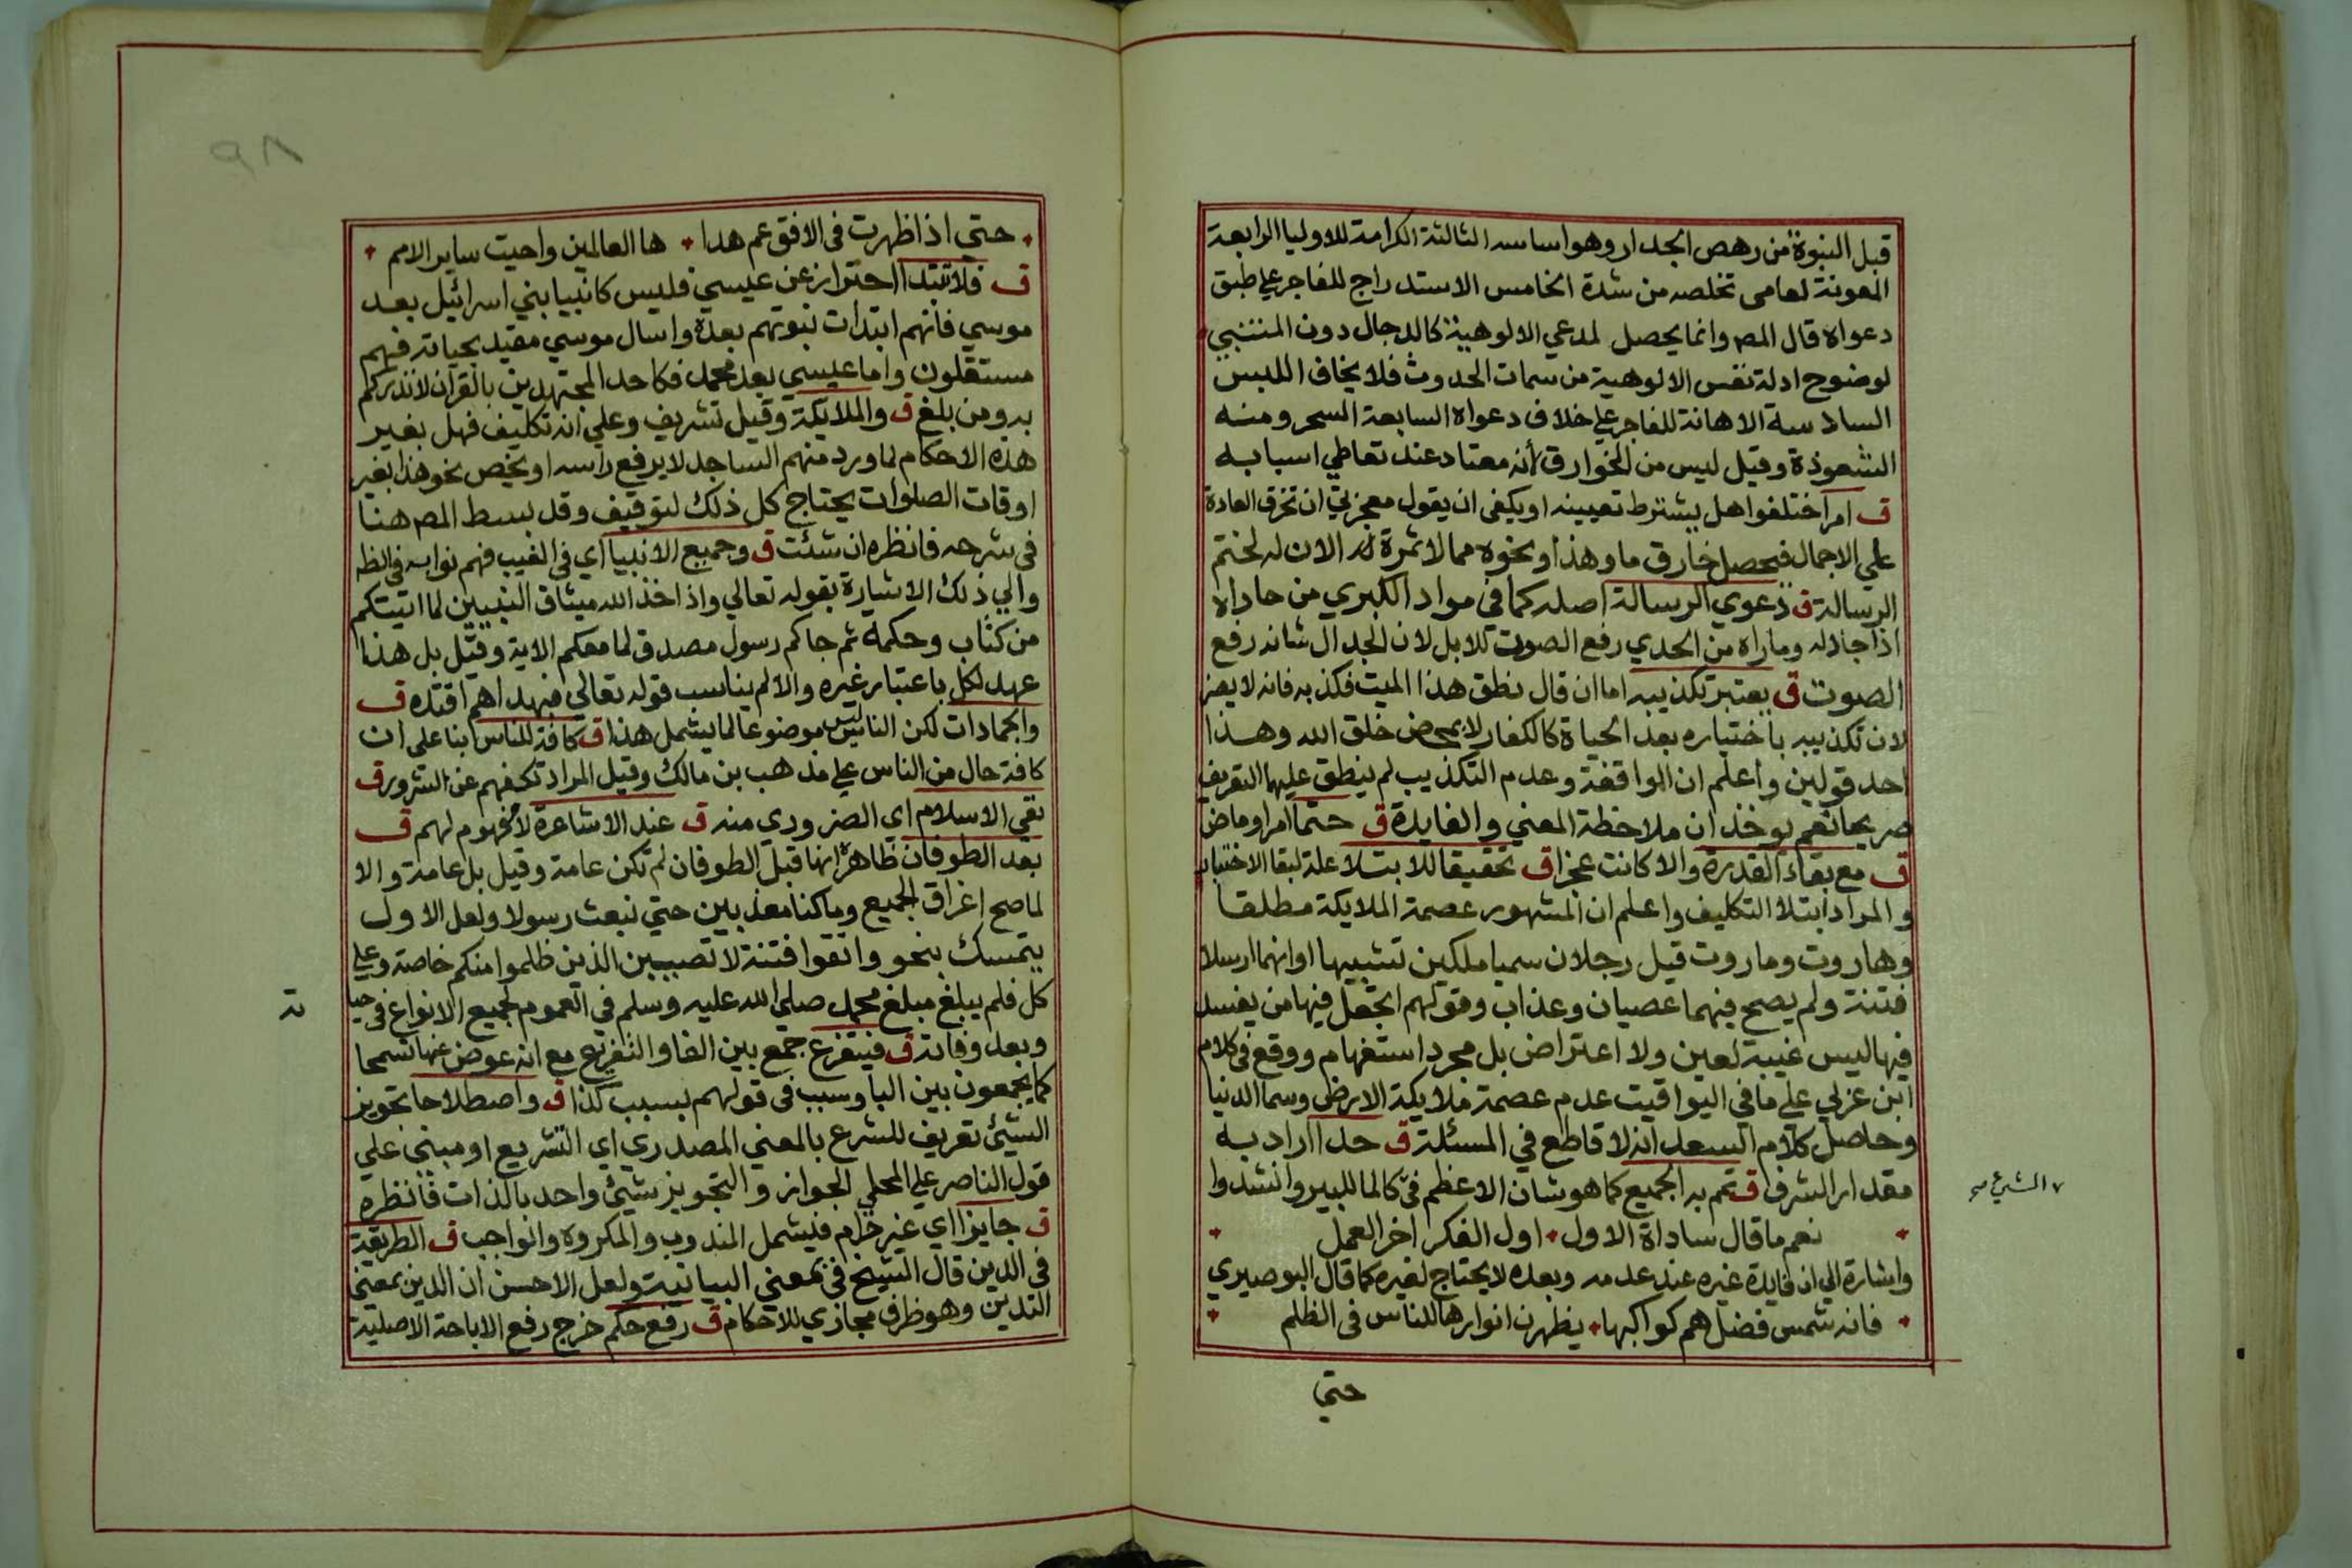 قبل النبوة من رهص الجدار وهو اساسه الثالثة الكرامة للاوليا الرابعة
المعونة لعامى تخلصه من شدة الخامس الاستدراج للفاجر علي طبق
دعواه قال المص وانما يحصل لمدعي الالوهية كالدجال دون المتنبي
لوضوح ادلة نفس الالوهية من سمات الحدوث فلا يخاف اللبس
السادسة الاهانة للفاجر علي خلاف دعواه السابعة السحر ومنه
الشعوذة وقيل ليس من الخوارق لأنه معتاد عند تعاطي اسبابه
ق امر اختلفوا هل يشترط تعيينه او يكفي ان يقول معجزتي ان تخرق العادة
علي الاجمال فيحصل خارق ما وهذا ونحوه مما لا ثمرة له الان لختم
الرسالة ق دعوي الرسالة اصله كما في مواد الكبري من حاداه
اذا جادله وماراه من الحدي رفع الصوت للابل لان الجدال شانه رفع
الصوت ق يعتبر تكذيبه اما ان قال نطق هذا الميت فكذبه فانه لا يضر
لان تكذيبه باختياره بعد الحياة كالكفار لا بمحض خلق الله وهذا
احد قولين واعلم ان الواقفة وعدم التكذيب لم ينطق عليها التعريف
صريحا نعم يوخذان ملاحظة المعني والفايدة ق حتما امرا وماض
ق مع بقاء القدرة والا كانت عجزا ق تحقيقا للابتلا علة لبقا الاختيار
والمراد ابتلا التكليف واعلم ان المشهور عصمة الملايكة مطلقا
وهاروت وماروت قيل رجلان سميا ملكين تشبيها او انهما ارسلا
فتنة ولم يصح فيهما عصيان وعذاب وقولهم اتجعل فيها من يفسد
فيها ليس غيبة لعين ولا اعتراض بل مجرد استفهام ووقع في كلام
ابن عزلي علي ما في اليواقيت عدم عصمة ملايكة الارض وسما الدنيا
وحاصل كلام السعد انه لا قاطع في المسئلة ق حدا اراد به
مقدار الشرف ق تمم به الجميع كما هو شان الاعظم في كالما للبير وانشدوا
٧ الشرع صح
نعم ما قال ساداة الاول اول الفكر اخر العمل
واشارة الي ان فايدة غيره عند عدمه وبعده لا يحتاج لغيره كما قال البوصيري
فانه شمس فضل هم كواكبها يظهرن انوارها للناس في الظلم
حتي
٩٨
حتي اذا ظهرت في الافق عم هدا ها العالمين واحيت ساير الامم
ق فلا تبتدا احترازا عن عيسي فليس كانبيا بني اسرائيل بعد
موسي فانهم ابتدات نبوتهم بعده وارسال موسي مقيد بحياته فهم
مستقلون واما عيسي بعد محمد فكاحد المجتهدين بالقرآن لانذركم
به ومن بلغ ق والملايكة وقيل تشريف وعلي انه تكليف فهل بغير
هذه الاحكام لما ورد منهم الساجد لا يرفع راسه او يخص نحو هذا بغير
اوقات الصلوات يحتاج كل ذلك لتوقيف وقد بسط المص هنا
في شرحه فانظره ان شئت ق وجميع الانبيا اي في الغيب فهم نوابه في الظ
والي ذلك الاشارة بقوله تعالي واذ اخذ الله ميثاق النبيين لما اتيتكم
من كتاب وحكمة ثم جاكم رسول مصدق لما معكم الاية وقيل بل هذا
عهد لكل باعتبار غيره والا لم يناسب قوله تعالي فبهداهم اقتده ق
والجمادات لكن الناس ليس موضوعا لما يشمل هذا ق كافة للناس ابنا علي ان
كافة حال من الناس علي مذهب بن مالك وقيل المراد تكفهم عن الشرور ق
نفي الاسلام اي الضروري منه ق عند الاشاعرة لا مفهوم لهم ق
بعد الطوفان ظاهره انها قبل الطوفان لم تكن عامة وقيل بل عامة والا
لما صح اغراق الجميع وما كنا معذبين حتي نبعث رسولا ولعل الاول
يتمسك بنحو واتقوا فتنة لا تصيبين الذين ظلموا منكم خاصة وعلي
كل فلم يبلغ مبلغ محمد صلي الله عليه وسلم في العموم لجميع الانواع في حيا
ته
وبعد وفاته ق فيتفرع جمع بين الفا والتفريع مع انه عوض عنها تسمحا
كما يجمعون بين البا وسبب في قولهم بسبب كذا ق واصطلاحا تجويز
الشيئ تعريف للشرع بالمعني المصدري اي التشريع او مبني علي
قول الناصر علي المحلي الجواز والتجويز شيئ واحد بالذات فانظره
ق جايزا اي غير حرام فيشمل المندوب والمكروه والواجب ق الطريقة
في الدين قال الشيخ في بمعني البيانية ولعل الاحسن ان الدين بمعني
التدين وهو ظرف مجازي للاحكام ق رفع حكم خرج رفع الاباحة الاصلية